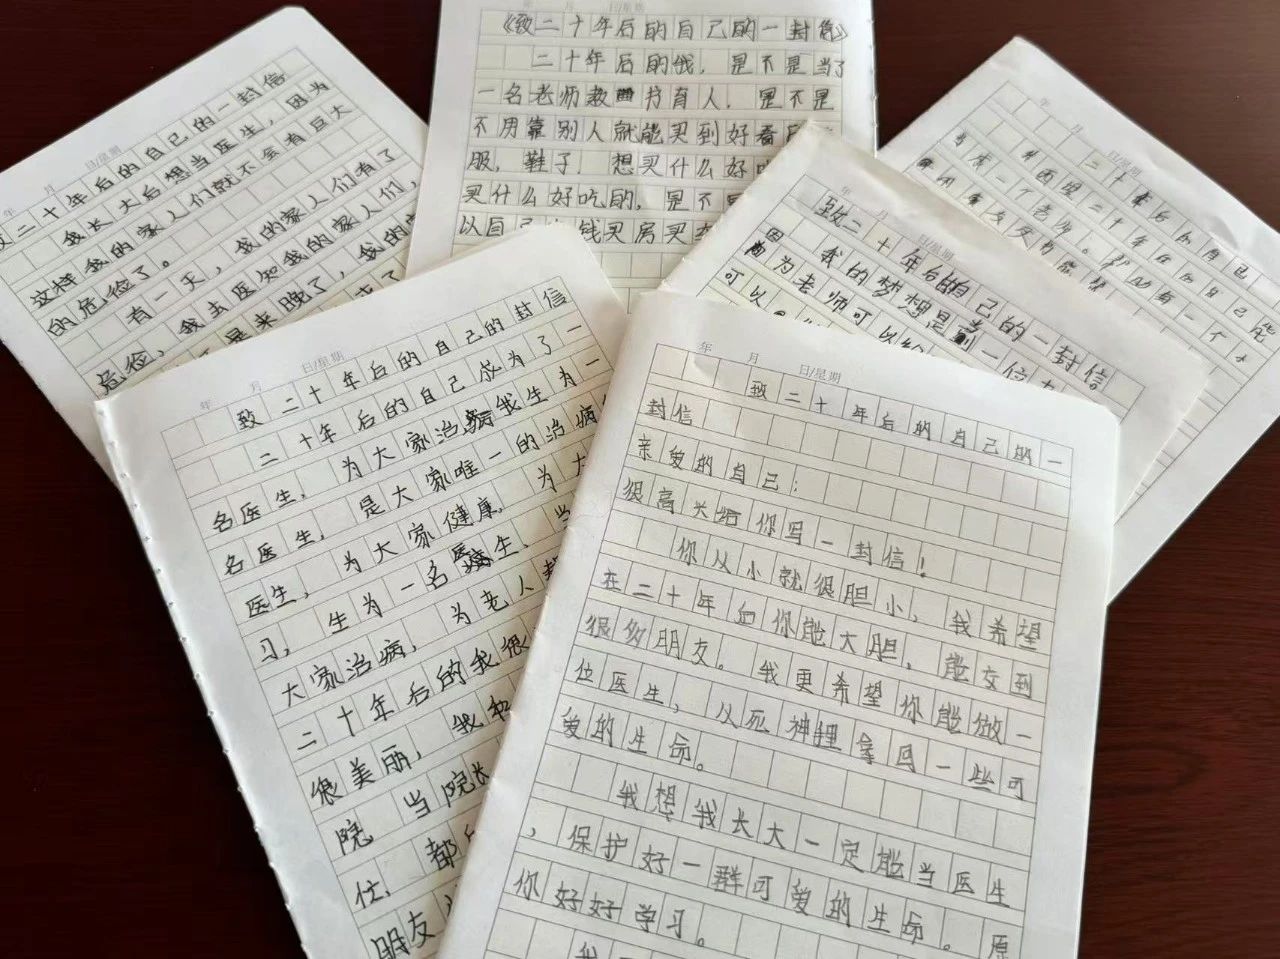 年 月 日/星期
致二十年后的自己的一封信
我长大后想当医生，因为
这样我的家人们就不会有巨大
的危险了。
有一天，我的家人们有了
危险，我去医知我的家人们，
是来晚了，我的
年 月 日/星期
《致二十年后的自己的一封信》
二十年后的我，是不是当了
一名老师教书育人，是不是
不用靠别人就能买到好看
服，鞋子，想买什么好吃
买什么好吃的，是不是
以自己 钱买房买车
年 月 日/星期
二十年后的自己
年
月
日/星期
致二十年后的自己的一封信
我的梦想是当一位
因为老师可以给
可以
年 月 日/星期
致二十年后的自己的封信
二十年后的自己成为了一
名医生，为大家治病我生为一
名医生，是大家唯一的治病
医生，为大家健康，为
习，生为一名医生，当
大家治病，为老人
二十年后的我很
很美丽，我和
院，当院长
任，都
朋友
年 月 日/星期
致二十年后的自己的一
封信
亲爱的自己：
很高兴给你写一封信！
你从小就很胆小，我希望
在二十年后你能大胆，能交到
很多朋友。我更希望你能做一
位医生，从死神狸拿回一些可
爱的生命。
我想我长大一定能当医生
，保护好一群可爱的生命。原
你好好学习。
我